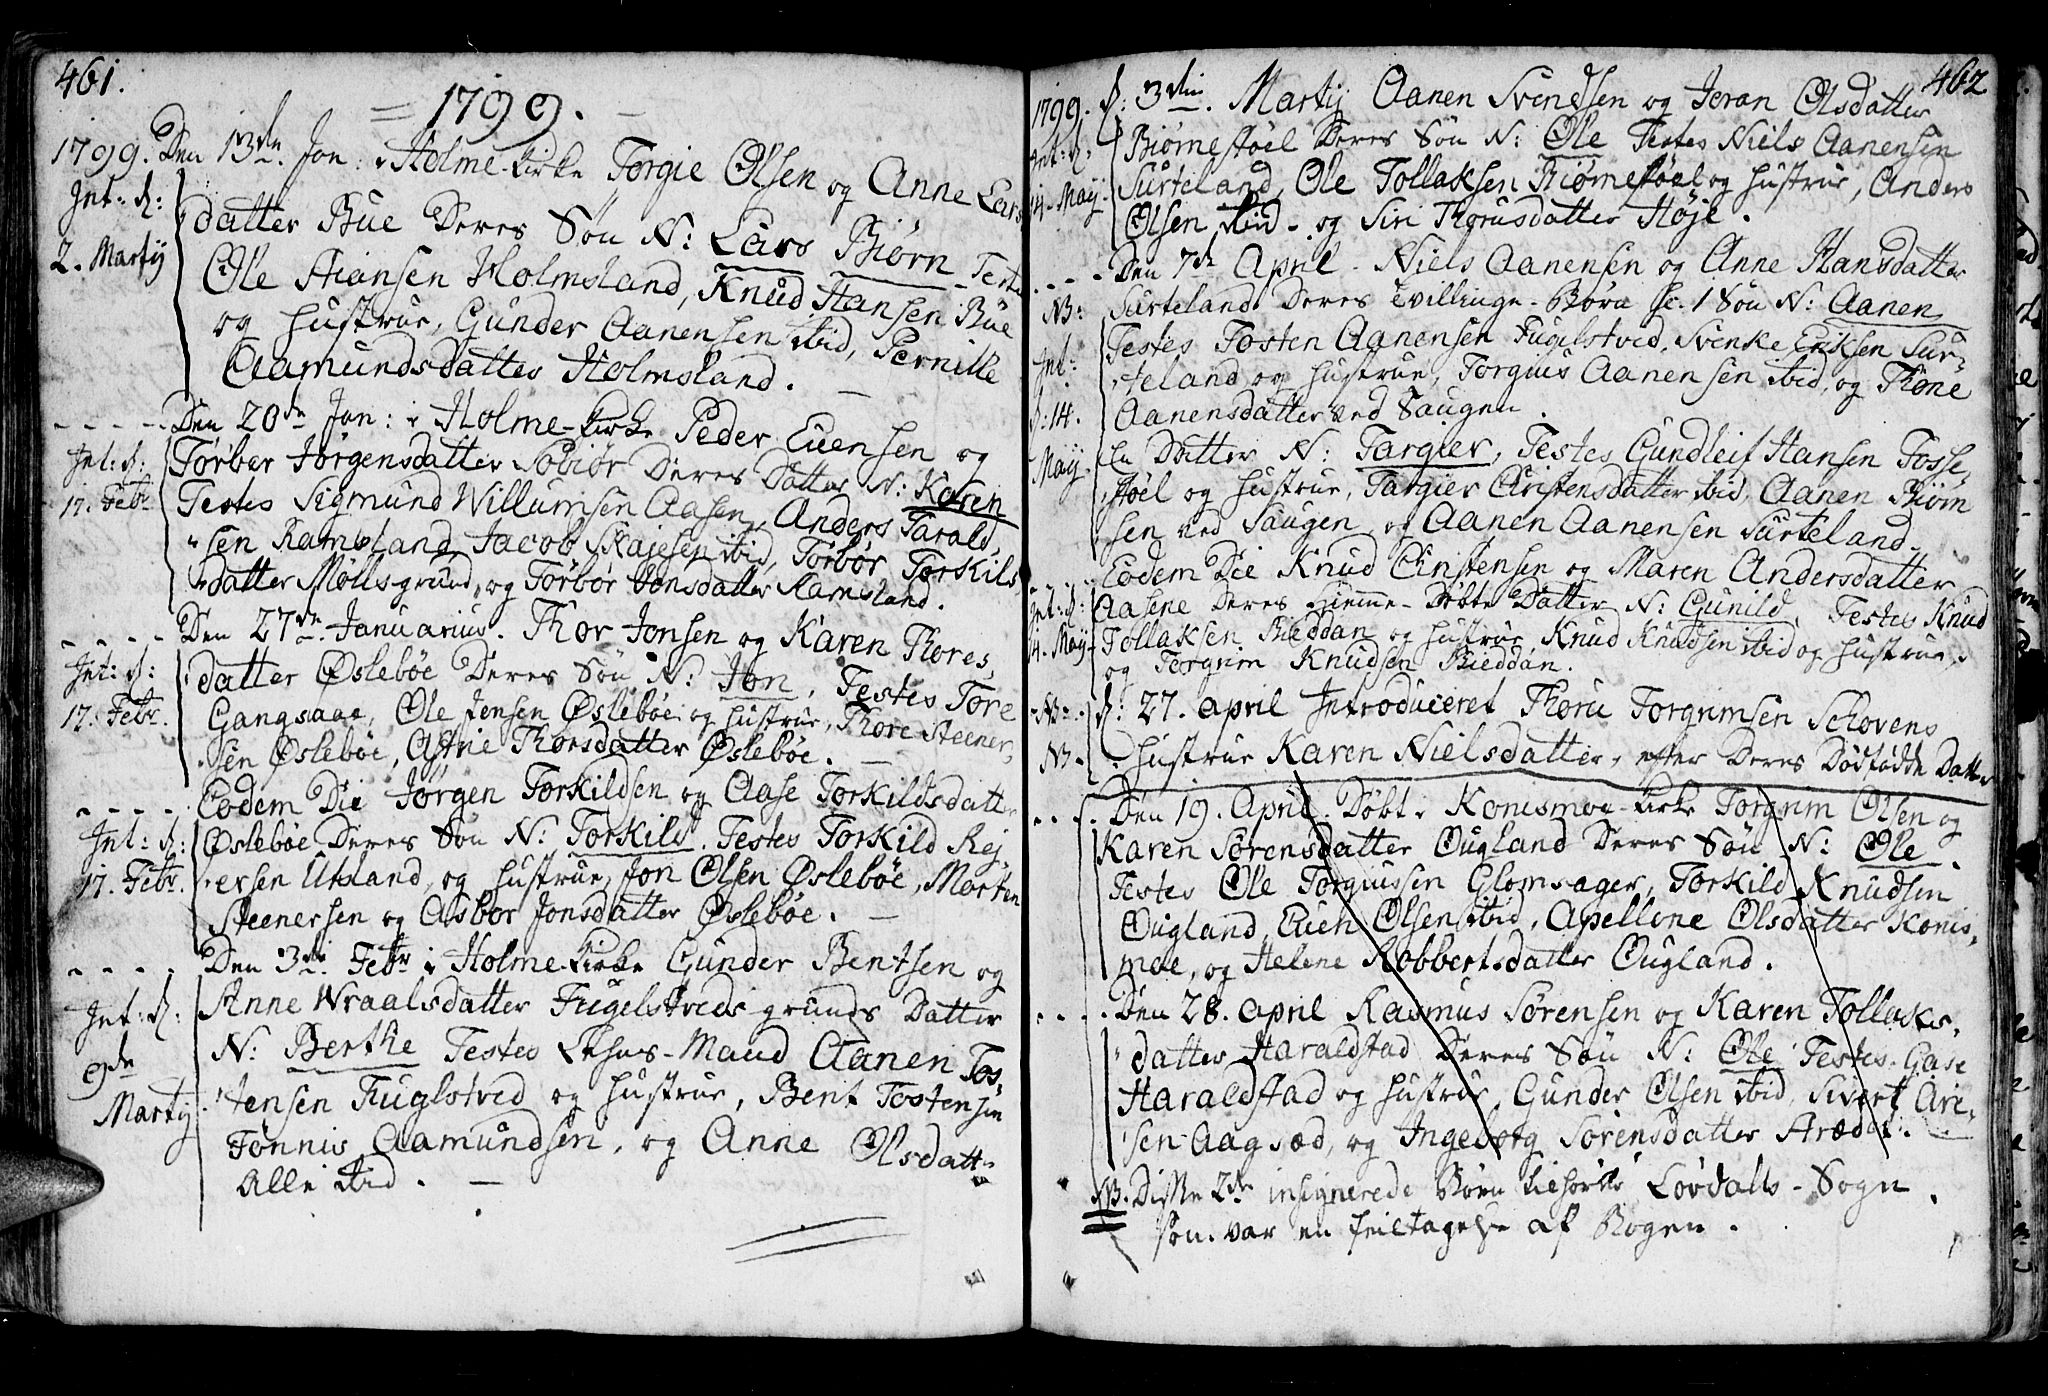 461.
= 1799. –
1799. Den 13de Jan: i Holme-Kirke Torgie Olsen og Anne Lars
Int: d: datter Bue Deres Søn N: Lars Biørn – Testes
2. Martij Ole Stiansen Holmsland, Knud Hansen Bue
og Hustrue, Gunder Aanensen ibid, Pernille
Aamundsdatter Holmsland. –
Den 20de Jan: i Holme-Kirke Peder Evensen og
Int: d: Tørber Jørgensdatter Søbiør Deres Datter N: Karen
17. Febr Testes Sigmund Willumsen Aasen, Anders Tarald,
sen Ramsland, Jacob ibid, Tørbør Torkils,
datter Møllsgrund, og Tørbør Jonsdatter Ramsland.
Den 27de Januarius. Thor Jonsen og Karen Thores,
Int: d: datter Øslebøe Deres Søn N: Jon, Testes Tore
17. Febr. Gangsaae, Ole Jensen Øslebøe og Hustrue, Thore Steener,
sen Øslebøe, Astrie Thorsdatter Øslebøe. –
Eodem Die Jørgen Torkildsen og Aase Torkildsdatt.
Int: d: Øslebøe Deres Søn N: Torkild. Testes Torkild Rej
17. Febr. ersen Ukland, og Hustrue, Jon Olsen Øslebøe, Morten
Steenersen og Asbor Jonsdatter Øslebøe. –
Den 3die Febr i Holme-Kirke Gunder Bentsen og
Int: d: Anne Wraalsdatter Fugelstveds grunds Datter
9de N: Berthe Testes Lehns-Mand Aanen Tos,
Martij. tensen Fuglstved og Hustrue, Bent Tostensen
Tønnis Aamundsen, og Anne Olsdatter
Alle ibid. –
462
1799. d: 3die Martij Aanen Svendsen og Jeran Olsdatter
Int: d: Biørnestøel Deres Søn N: Ole Testes Niels Aanensen
14. Maij. Surteland, Ole Tollaksen Biørnestøel og Hustrue, Anders
Olsen ibid – og Siri Thorusdatter Høje.
Den 7de April – Niels Aanensen og Anne Hansdatter
NB: Surteland Deres Tvillinge-Børn sc. 1 Søn N: Aanen
Int: Testes Tosten Aanensen Fugelstved, Svenke Eriksen Sur-
teland og Hustrue, Torgius Aanensen ibid, og Thone
d: 14. Aanensdatter ved Saugen.
Maij. En Datter N: Targier, Testes Gundleif Hansen Fosse,
støel og Hustrue, Targier Christensdatter ibid, Aanen Biørn
sen ved Saugen, og Aanen Aanensen Surteland.
Eodem Die Knud Christensen og Maren Andersdatter
Int: d: Aasene Deres Hiemme-Døbte Datter N: Gunild. Testes Knud
14. Maij. Tollaksen Bieddan og Hustrue, Knud Knudsen ibid og Hustrue,
og Torgrim Knudsen Bieddan.
NB: d: 27. April Introduceret Thoru Torgrimsen Schovens
NB – Hustrue Karen Nielsdatter, efter Deres Dødfødde Datter
Den 19. April. Døbt i Konismoe-Kirke Torgrim Olsen og
Karen Sørensdatter Ougland Deres Søn N: Ole.
Testes Ole Torgiussen Glomsager, Torkild Knudsen
Ougland, Even Olsen ibid, Apellone Olsdatter Konis,
moe, og Helene Robbertsdatter Ougland.
Den 28. April Rasmus Sørensen og Karen Tollaks,
datter Haraldstad Deres Søn N: Ole Testes Gase
Haraldstad og Hustrue, Gunder Olsen ibid, Sivert Ari-
sen Aagsæd, og Ingeborg Sørensdatter Arædel.
NB. Disse 2de insignerede Børn tilhører Løvdalls-Sogn.
som var en feiltagelse af Bogen.